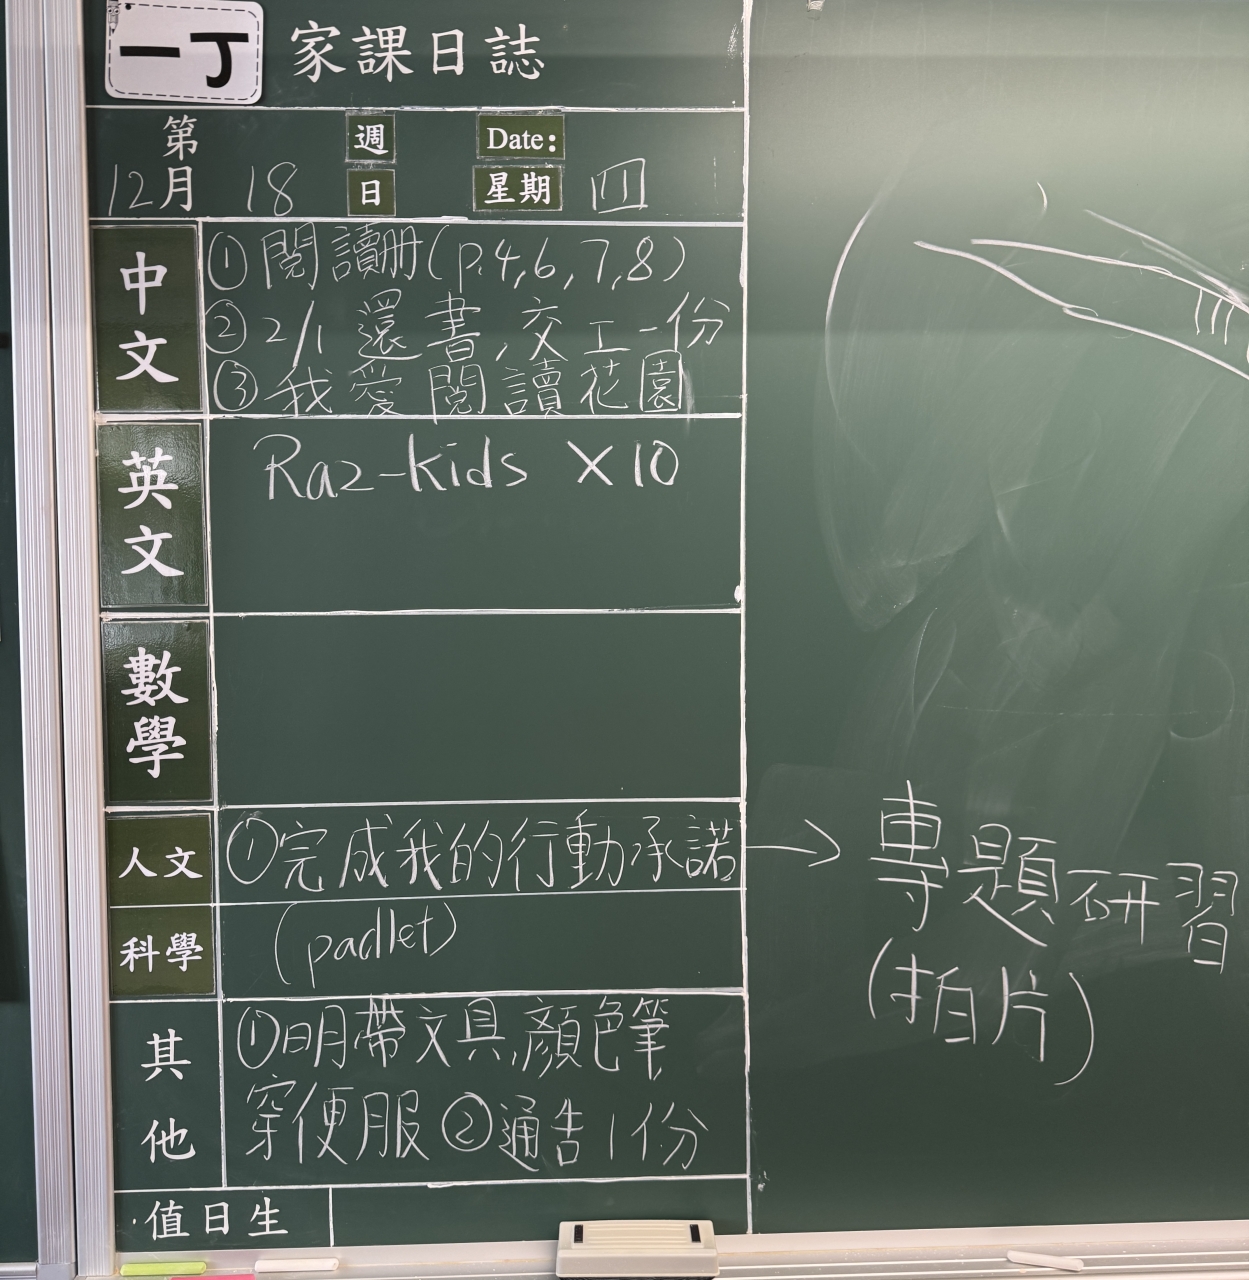 一丁 家課日誌
第 週 Date:
12月 18 日 星期 四
中文
①閱讀冊(p.4,6,7,8)
②2/1 還書,交工一份
③我愛閱讀花園
英文
Raz-kids ×10
數學
人文
①完成我的行動承諾→專題研習
(拍片)
科學
(padlet)
其他
①明帶文具,顏色筆,
穿便服②通告1份
值日生